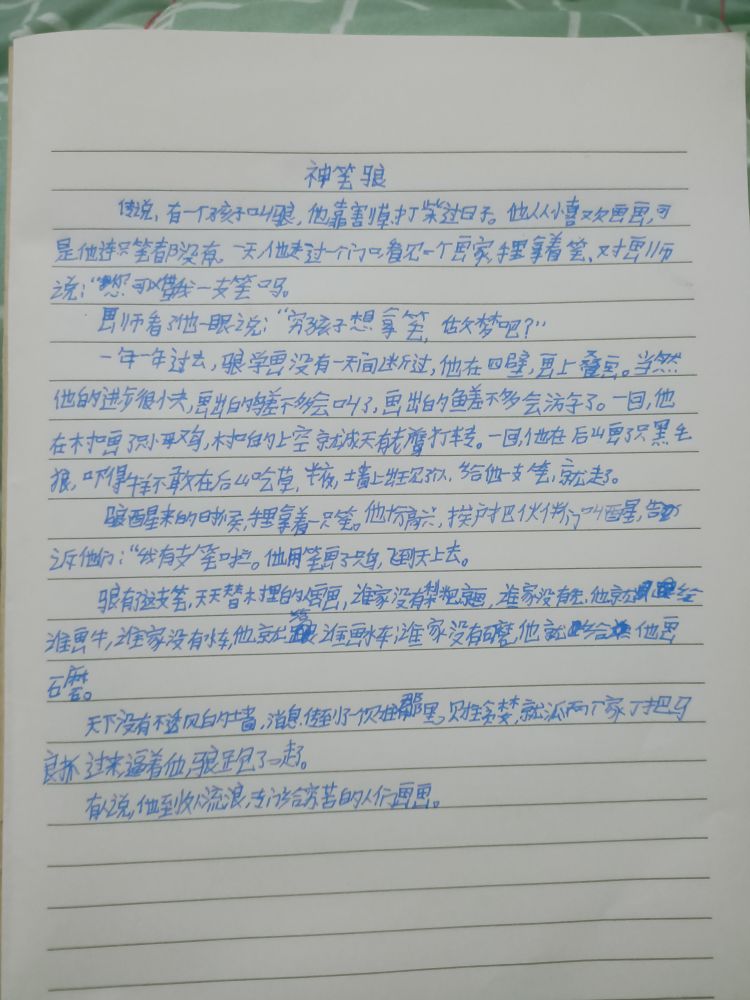 神笔马良
传说，有一个孩子叫马良，他靠割草，打柴过日子。他从小喜欢画画，可
是他连只笔都没有。一天他走过一个门口，看见一个画家，手里拿着笔、对画师
说：“您可以借我一支笔吗。
画师看了他一眼说：“穷孩子想拿笔，做梦吧？”
一年一年过去，马良学画没有一天间断过，他在四壁，画上叠画。当然
他的进步很小夫，画出的鸟差不多会叫了，画出的鱼差不多会游车了。一回，他
在村扣画了只小母鸡，村扣的上空就成天有老鹰打转。一回，他在后山画了只黑毛
狼，吓得牛羊不敢在后山吃草，半夜，土墙上出现了人，给他一支笔，就走了。
马良醒来的时候，手里拿着一只笔。他很高兴，挨户把伙伴们叫醒，告
诉他们：“我有支笔啦。他用笔画了只鸟，飞到天上去。
马良有了这支笔，天天替村里的画画，谁家没有犁耙就画，谁家没有，他就给
谁画牛，谁家没有水车，他就给谁画水车；谁家没有石磨，他就给他画
石磨。
天下没有不透风白的墙，消息传到了一个财主那里，财主贪婪，就派两个家丁把马
良抓过来，逼着他，马良跑了走了。
有人说，他到处流浪，专门给穷苦的人们画画。